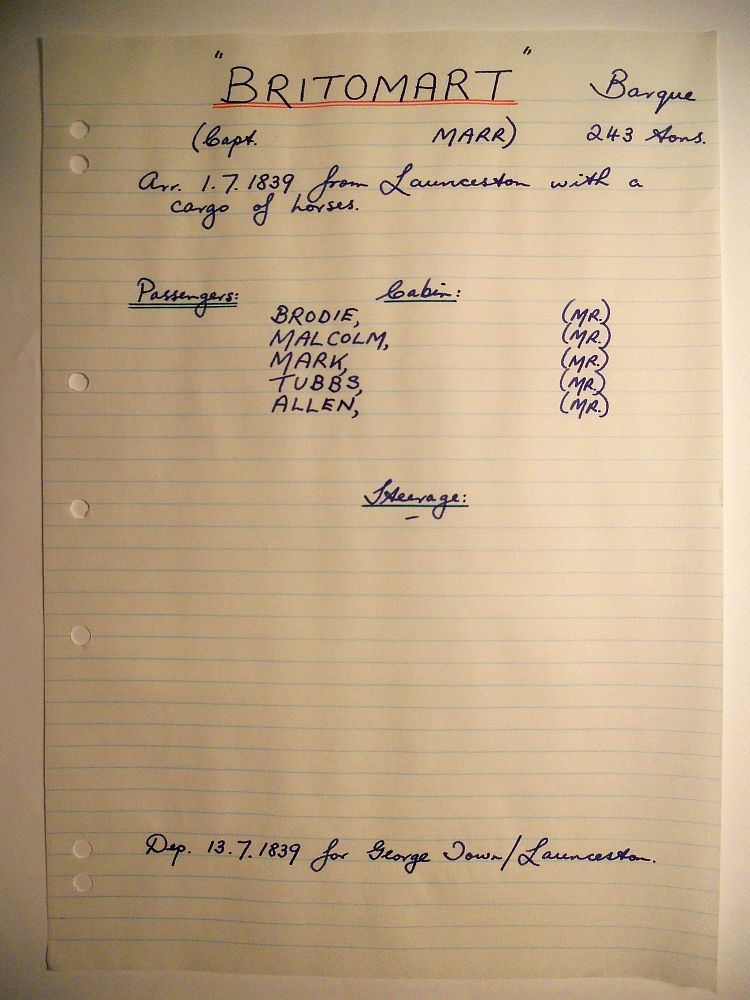 "BRITOMART" Barque
(Capt. MARR) 243 tons.
Arr. 1.7.1839 from Launceston with a
cargo of horses.
Passengers: Cabin:
BRODIE, (MR.)
MALCOLM, (MR.)
MARK, (MR.)
TUBBS, (MR.)
ALLEN, (MR.)
Steerage:
–
Dep. 13.7.1839 for George Town/Launceston.